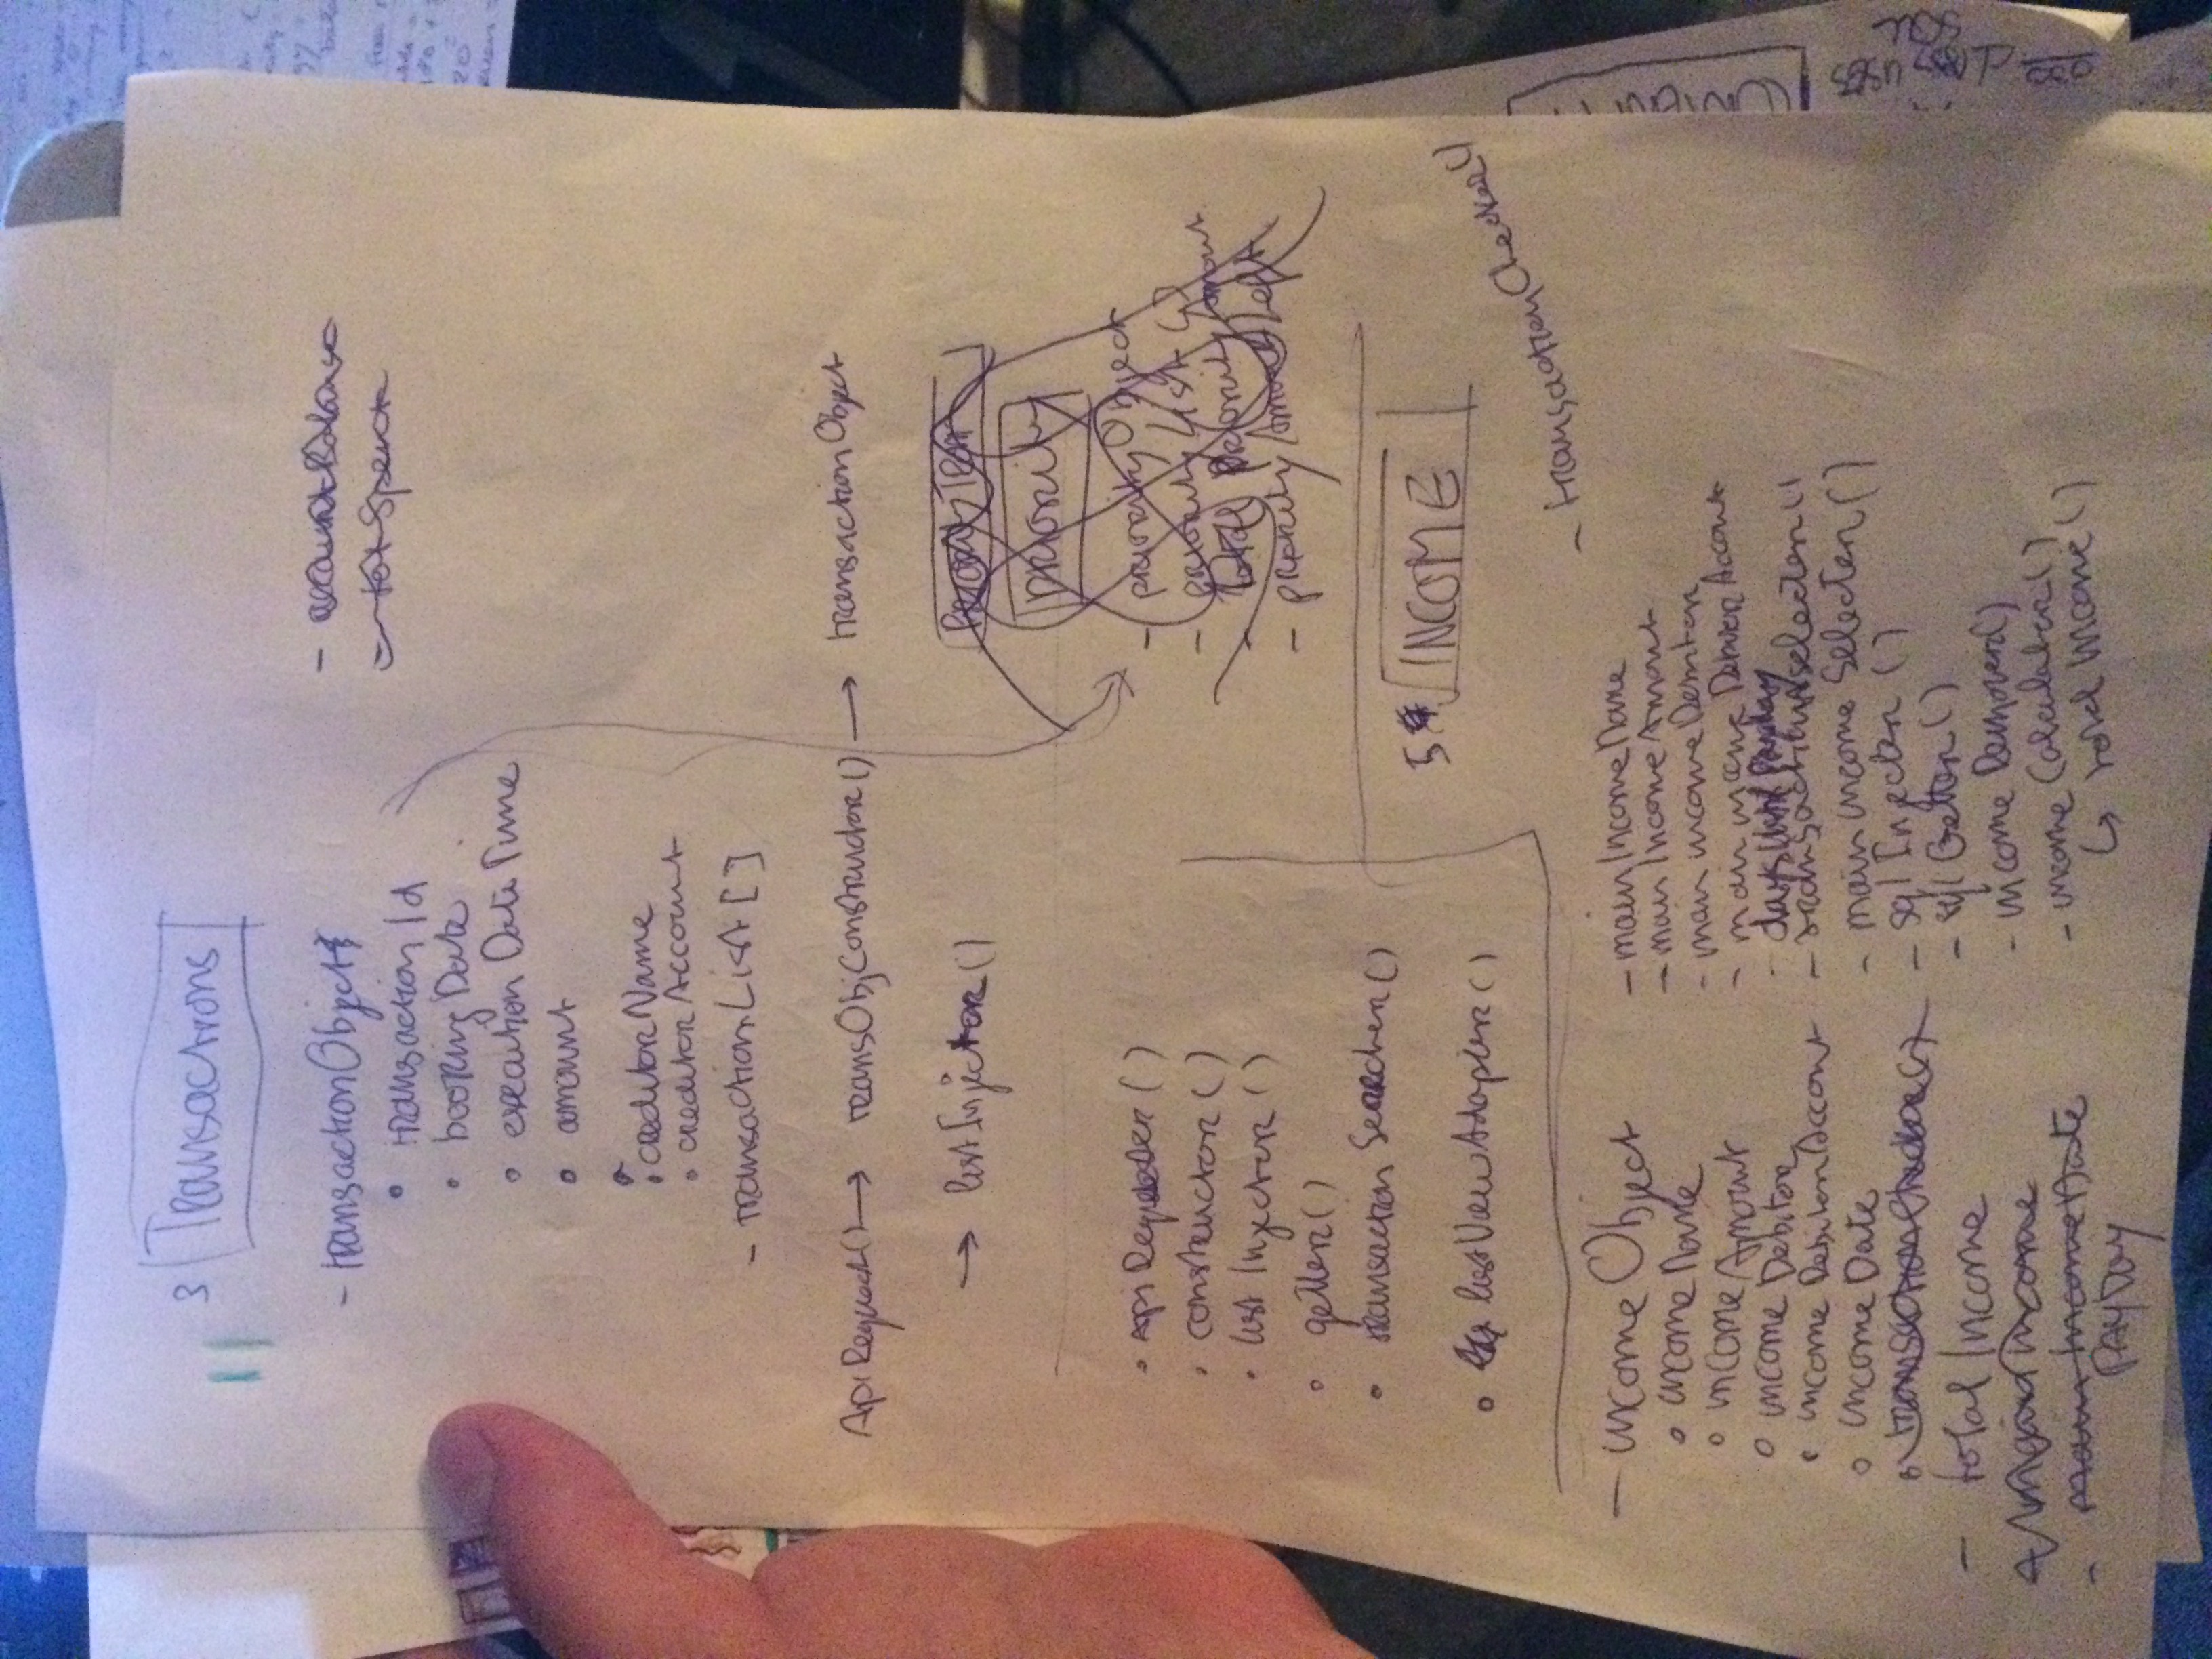 3 Transactions
- transactionObject
• transactionId
• bookingDate
• executionDateTime
• amount
• creditorName
• creditorAccount
- transactionList []
- accountBalance
- totSpent
ApiRequest() → transObjConstructor() → transactionObject
→ listInjector()
priority
- priorityObject
- priorityList
- total priority Amount
- priorityAmountLeft
• apiRequester()
• constructor()
• listInjector()
• getter()
• transactionSearcher()
• listViewAdapter()
5 INCOME
- transactionChecker()
- incomeObject
• incomeName
• incomeAmount
• incomeDebitor
• incomeDebitorAccount
• incomeDate
• transactionChecker()
- totalIncome
mainIncome
- mainIncomeDate
PAYDAY
- mainIncomeName
- mainIncomeAmount
- mainIncomeDebitor
- mainIncomeDebitorAccount
- daysUntilPayday
- transactionSelecter()
- mainIncomeSelecter()
- sqlInjecter()
- sqlGetter()
- incomeRemover()
- incomeCalculator()
↳ totalIncome()